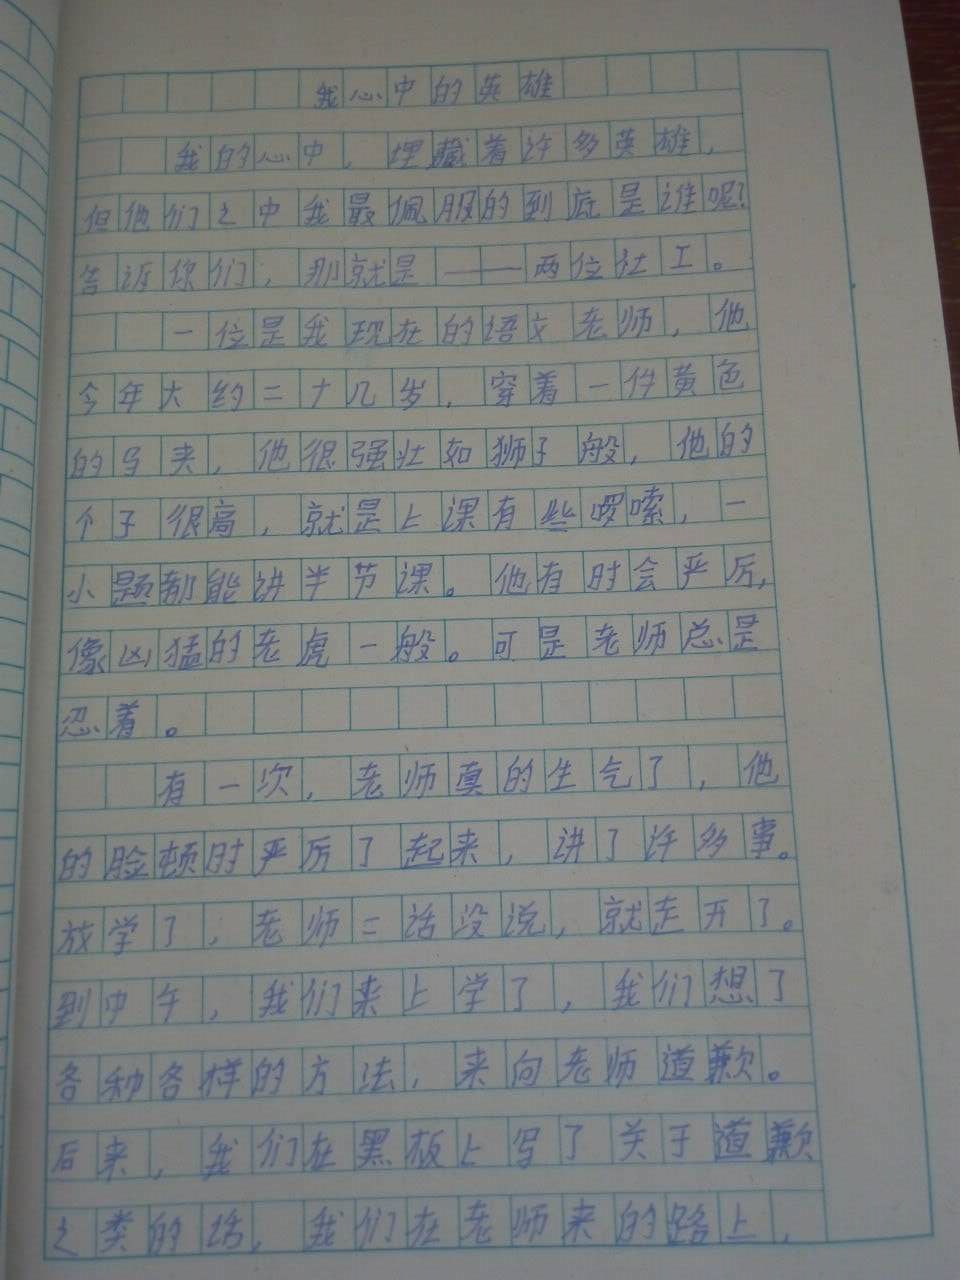 我心中的英雄
我的心中，埋藏着许多英雄，
但他们之中我最佩服的到底是谁呢？
告诉你们，那就是——两位社工。
一位是我现在的语文老师，他
今年大约二十几岁，穿着一件黄色
的马夹，他很强壮如狮子般，他的
个子很高，就是上课有些啰嗦，一
小题都能讲半节课。他有时会严厉，
像凶猛的老虎一般。可是老师总是
忍着。
有一次，老师真的生气了，他
的脸顿时严厉了起来，讲了许多事。
放学了，老师二话没说，就走开了。
到中午，我们来上学了，我们想了
各种各样的方法，来向老师道歉。
后来，我们在黑板上写了关于道歉
之类的话，我们在老师来的路上，